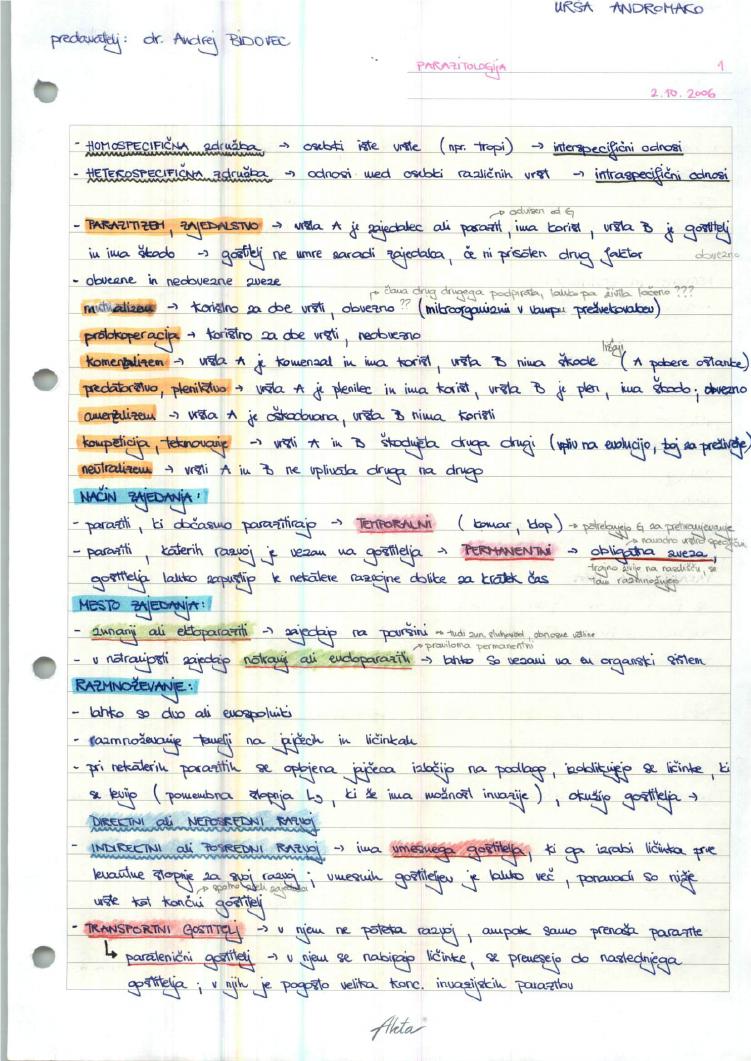 URŠA ANDROMAKO
predavatelj: dr. Andrej BIDOVEC
PARAZITOLOGIJA 1
2.10.2006
- HOMOSPECIFIČNA združba → osebki iste vrste (npr. tropi) → interspecifični odnosi
- HETEROSPECIFIČNA združba → odnosi med osebki različnih vrst → intraspecifični odnosi
→ odvisen od G
- PARAZITIZEM, ZAJEDALSTVO → vrsta A je zajedalec ali parazit, ima korist, vrsta B je gostitelj
in ima škodo → gostitelj ne umre zaradi zajedalca, če ni prisoten drug faktor obvezno
- obvezne in neobvezne zveze
→ člana drug drugega podpirata, lahko pa živita ločeno ???
mutualizem → koristno za obe vrsti, obvezno ?? (mikroorganizmi v vampu prežvekovalcev)
protokoperacija → koristno za obe vrsti, neobvezno
komenzalizem → vrsta A je komenzal in ima korist, vrsta B nima škode (A pobere ostanke)
predatorstvo, plenilstvo → vrsta A je plenilec in ima korist, vrsta B je plen, ima škodo; obvezno
amenzalizem → vrsta A je oškodovana, vrsta B nima koristi
kompeticija, tekmovanje → vrsti A in B škodujeta druga drugi (vpliv na evolucijo, boj za preživetje)
neutralizem → vrsti A in B ne vplivata druga na drugo
NAČIN ZAJEDANJA:
- paraziti, ki občasno parazitirajo → TEMPORALNI (komar, klop) → potrebujejo G za prehranjevanje
→ navadno vrstno specifični
- paraziti, katerih razvoj je vezan na gostitelja → PERMANENTNI → obligatna zveza,
trajno živijo na nazalšču, se
gostitelja lahko zapustijo le nekatere razvojne oblike za kratek čas tam razmnožujejo
MESTO ZAJEDANJA:
- zunanji ali ektoparaziti → zajedajo na površini → tudi zun. sluhovod, obnosne votline
→ praviloma permanentni
- v notranjosti zajedajo notranji ali endoparaziti → lahko so vezani na en organski sistem
RAZMNOŽEVANJE:
- lahko so dvo ali enospolniki
- razmnoževanje temelji na jajčecih in ličinkah
- pri nekaterih parazitih se oplojena jajčeca izločijo na podlago, izoblikujejo se ličinke, ki
se levijo (pomembna stopnja L3, ki že ima možnost invazije), okužijo gostitelja →
DIREKTNI ali NEPOSREDNI RAZVOJ
- INDIREKTNI ali POSREDNI RAZVOJ → ima vmesnega gostitelja, ki ga izrabi ličinka prve
levantne stopnje za svoj razvoj; vmesnih gostiteljev je lahko več, ponavadi so nižje
→ spolno zreli zajedalci
vrste kot končni gostitelj
- TRANSPORTNI GOSTITELJ → v njem ne poteka razvoj, ampak samo prenaša parazite
↳ paratenični gostitelj → v njem se nabirajo ličinke, se prenesejo do naslednjega
gostitelja; v njih je pogosto velika konc. invazijskih parazitov
Akta